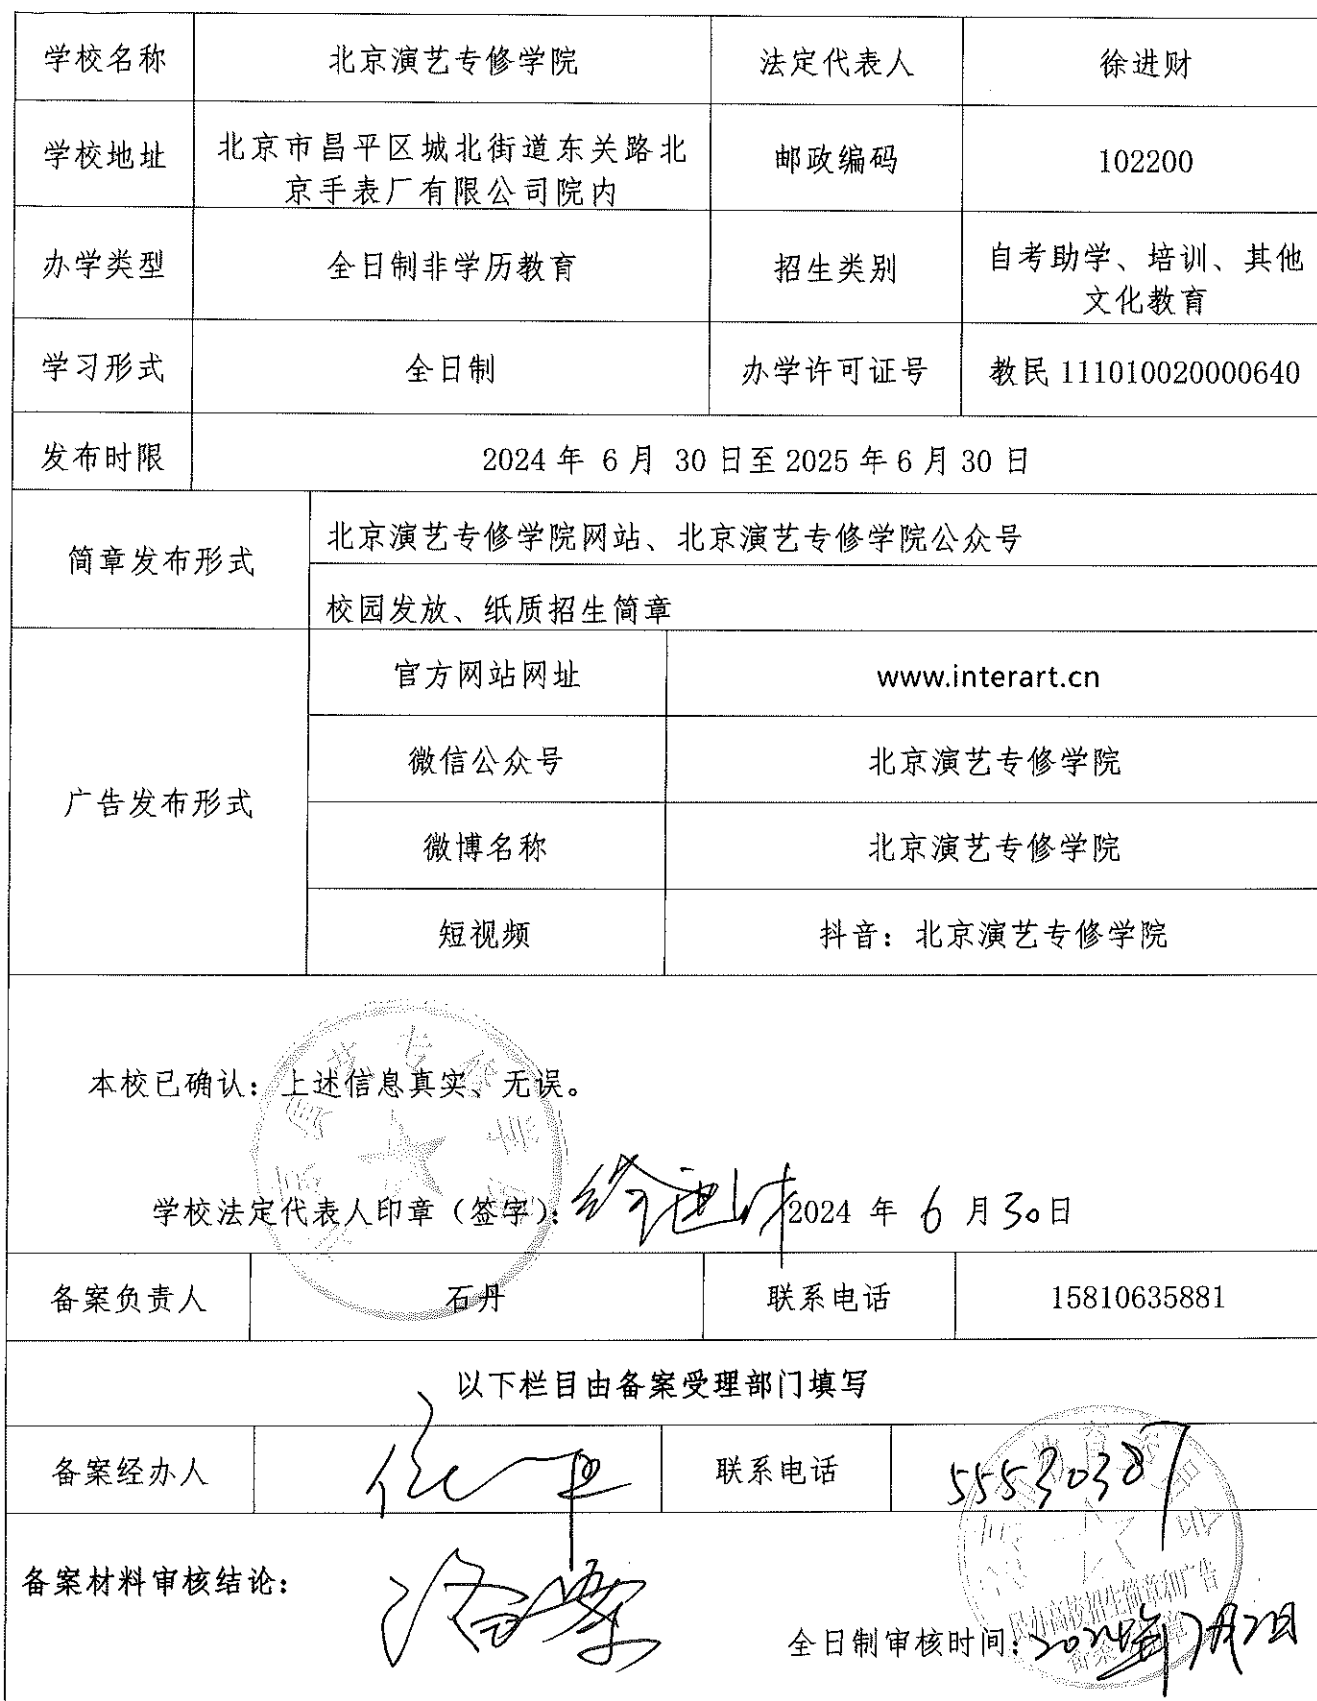 学校名称 北京演艺专修学院 法定代表人 徐进财
学校地址 北京市昌平区城北街道东关路北 邮政编码 102200
京手表厂有限公司院内
办学类型 全日制非学历教育 招生类别 自考助学、培训、其他
文化教育
学习形式 全日制 办学许可证号 教民 111010020000640
发布时限 2024 年 6 月 30 日至 2025 年 6 月 30 日
简章发布形式 北京演艺专修学院网站、北京演艺专修学院公众号
校园发放、纸质招生简章
广告发布形式 官方网站网址 www.interart.cn
微信公众号 北京演艺专修学院
微博名称 北京演艺专修学院
短视频 抖音：北京演艺专修学院
本校已确认：上述信息真实、无误。
学校法定代表人印章（签字）：徐进财 2024 年 6 月 30 日
备案负责人 石丹 联系电话 15810635881
以下栏目由备案受理部门填写
备案经办人 联系电话 55530387
备案材料审核结论：
民办高校招生简章和广告
全日制审核时间：2024年7月2日